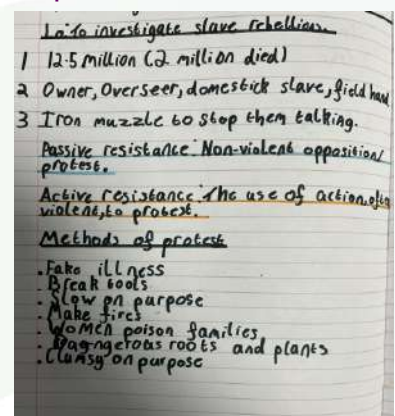 Lo: To investigate slave rebellion.
1 12.5 million (2 million died)
2 Owner, Overseer, domestick slave, field hand
3 Iron muzzle to stop them talking.
Passive resistance: Non-violent opposition/
protest.
Active resistance: The use of action, often
violent, to protest.
Methods of protest
. Fake illness
. Break tools
. Slow on purpose
. Make fires
. Women poison families
. Dagngerous roots and plants
. Clumsy on purpose